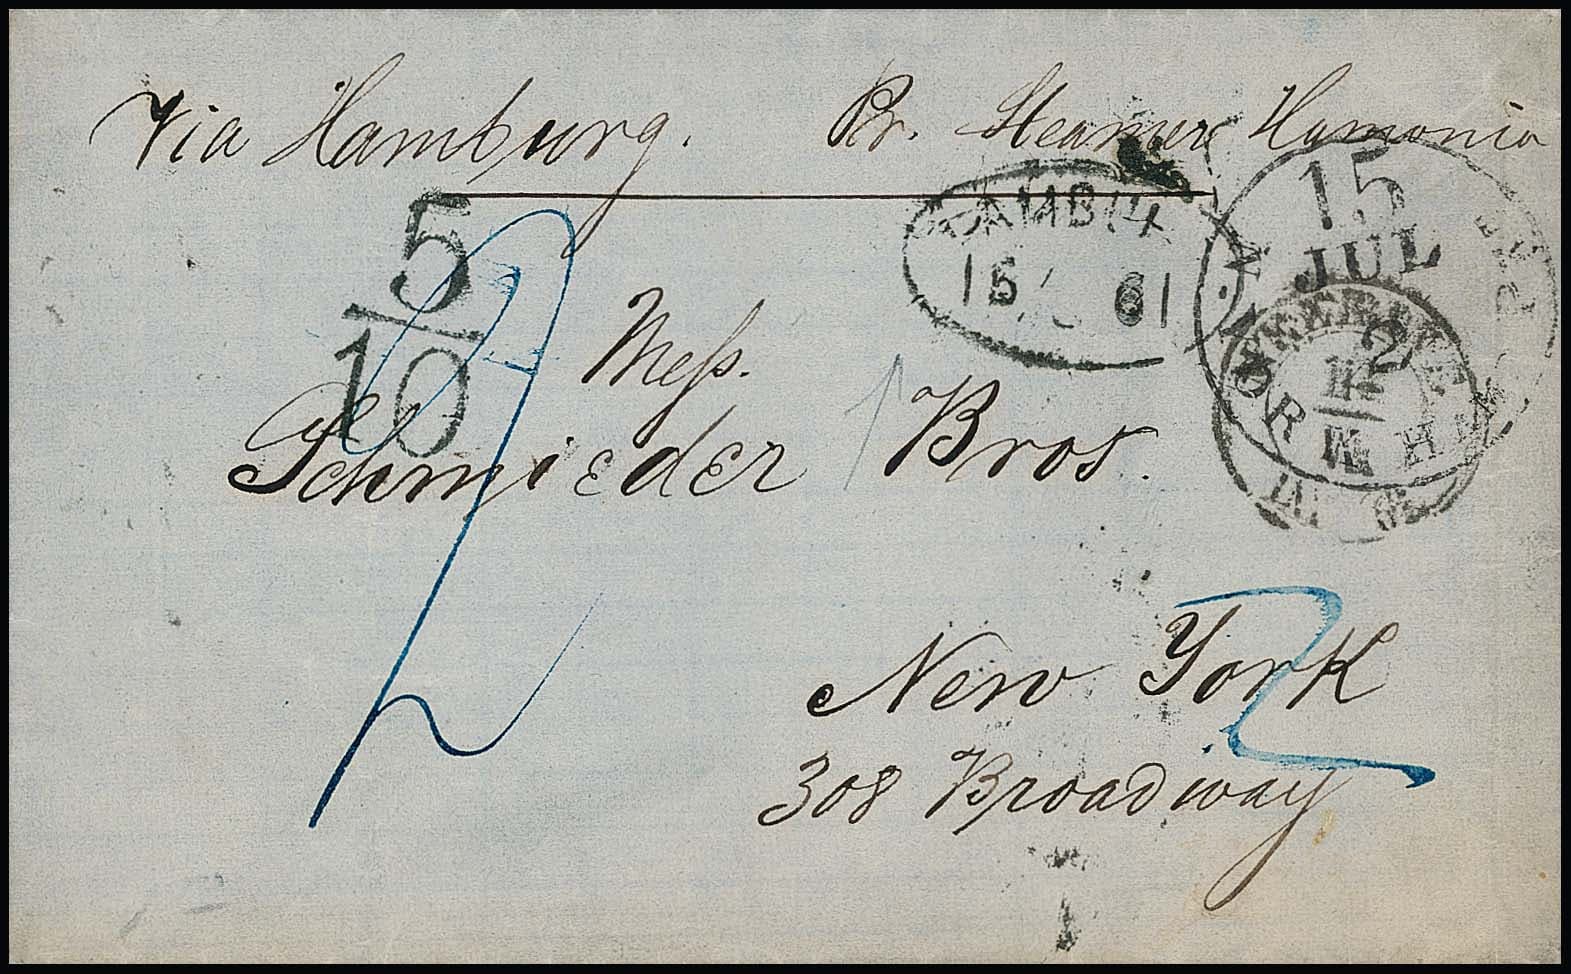 Via Hamburg. Pr. Steamer Hamonia
5
10
HAMBU
15 61
15
JUL
2
Meſs.
Schmieder Bros.
New York
2
308 Broadway